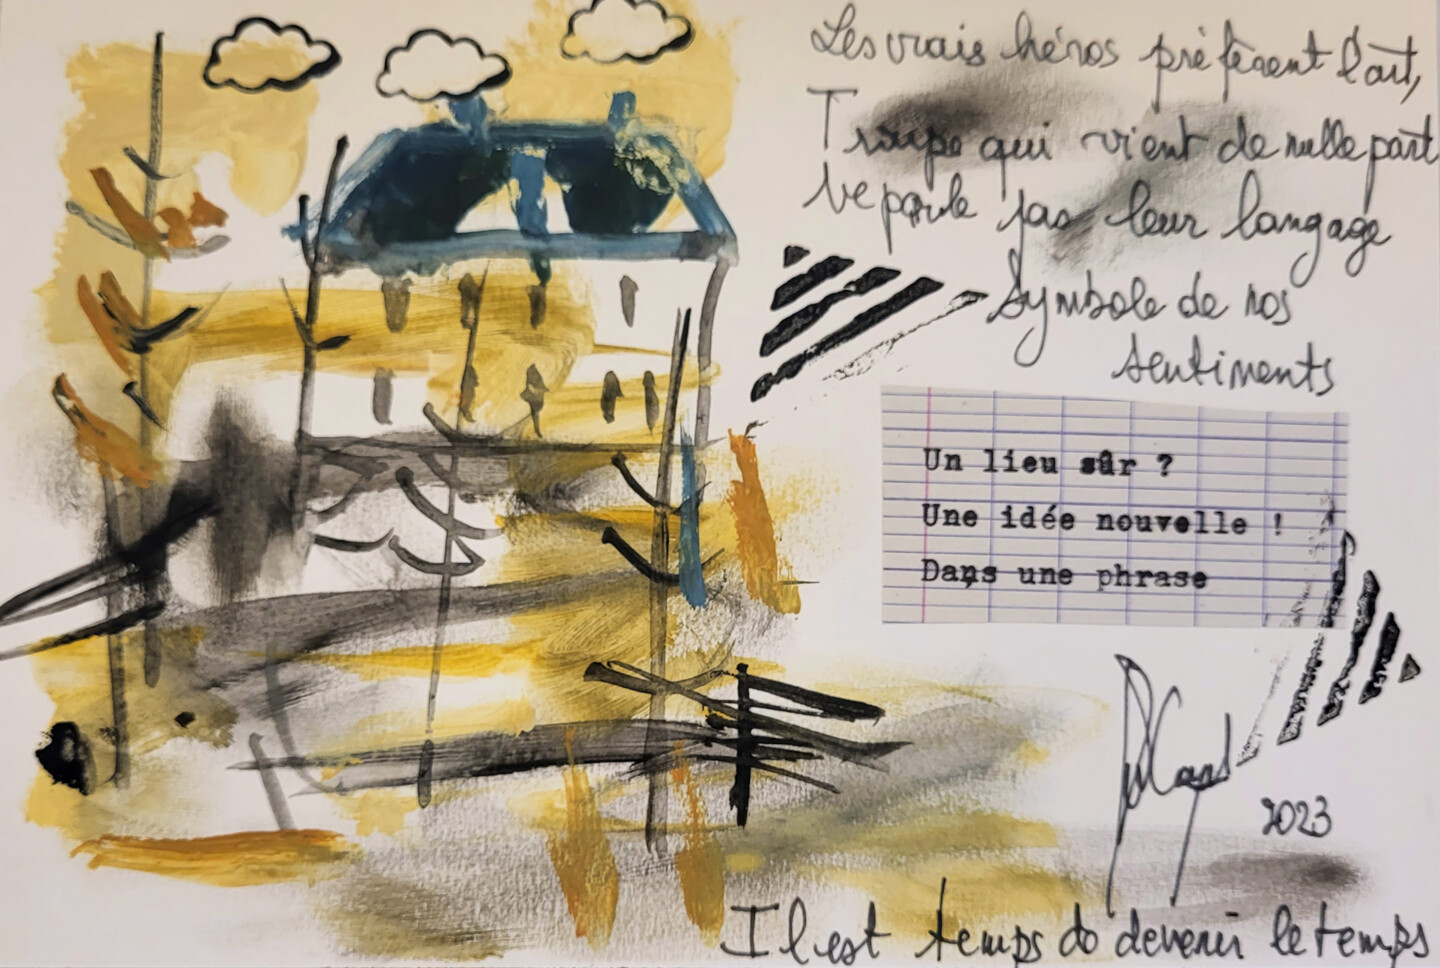 Les vrais héros préfèrent l'art,
Troupe qui vient de nulle part
Ne parle pas leur langage
Symbole de nos
sentiments
Un lieu sûr ?
Une idée nouvelle !
Dans une phrase
2023
Il est temps de devenir le temps